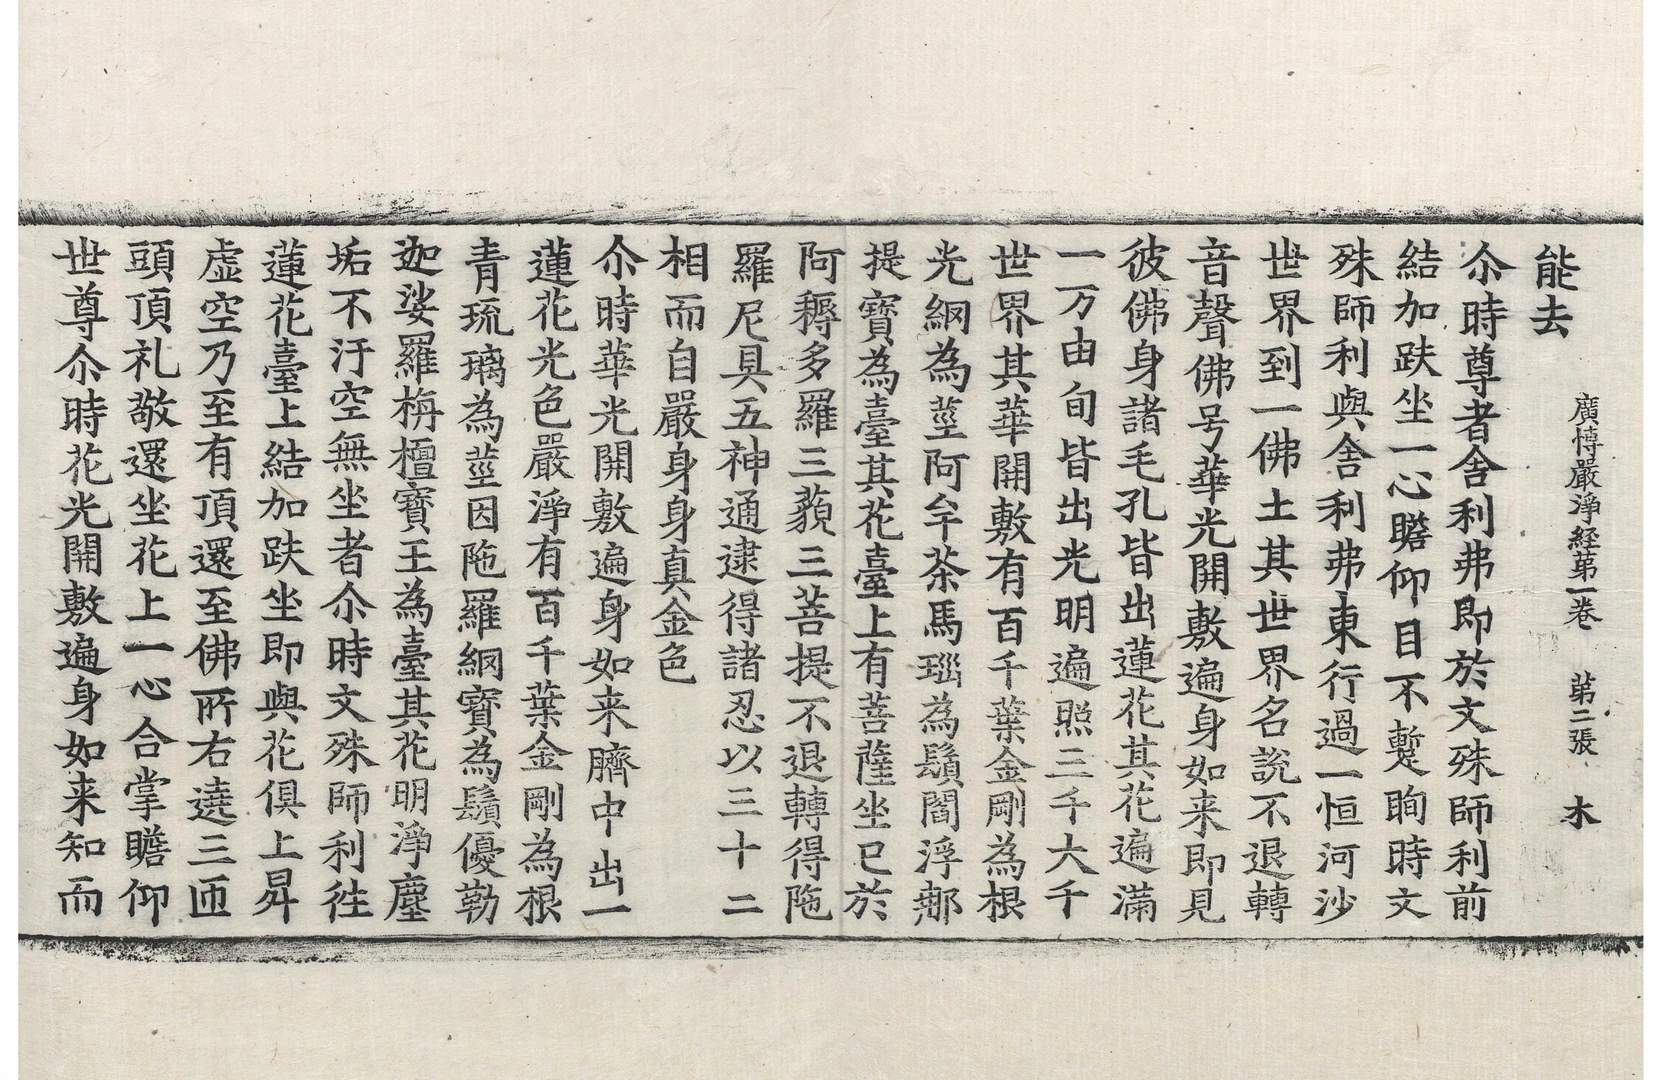 能去
廣博嚴淨経第一卷　第二張　木
尒時尊者舍利弗即於文殊師利前
結加趺坐一心瞻仰目不蹔眴時文
殊師利與舍利弗東行過一恒河沙
世界到一佛土其世界名說不退轉
音聲佛号華光開敷遍身如来即見
彼佛身諸毛孔皆出蓮花其花遍滿
一万由旬皆出光明遍照三千大千
世界其華開敷有百千葉金剛為根
光網為莖阿牟茶馬瑙為鬚閻浮郍
提寶為臺其花臺上有菩薩坐已於
阿耨多羅三藐三菩提不退轉得陁
羅尼具五神通逮得諸忍以三十二
相而自嚴身身真金色
尒時華光開敷遍身如来臍中出一
蓮花光色嚴淨有百千葉金剛為根
青琉璃為莖因陁羅網寶為鬚優勒
迦娑羅栴檀寶王為臺其花明淨塵
垢不汙空無坐者尒時文殊師利徃
蓮花臺上結加趺坐即與花俱上昇
虛空乃至有頂還至佛所右遶三匝
頭頂礼敬還坐花上一心合掌瞻仰
世尊尒時花光開敷遍身如来知而